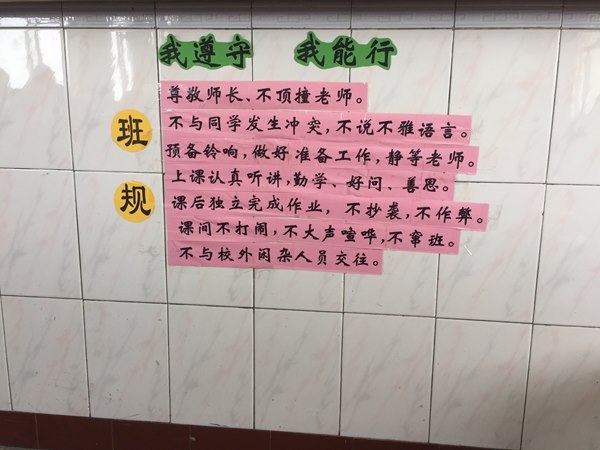 我遵守 我能行
班规
尊敬师长、不顶撞老师。
不与同学发生冲突,不说不雅语言。
预备铃响,做好准备工作,静等老师。
上课认真听讲,勤学、好问、善思。
课后独立完成作业,不抄袭,不作弊。
课间不打闹,不大声喧哗,不窜班。
不与校外闲杂人员交往。